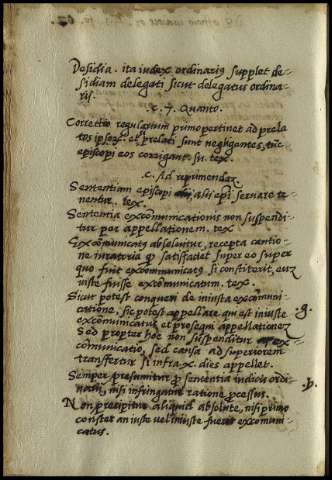 Desidia. ita iudex ordinarius supplet de-
sidiam delegati sicut delegatus ordina-
rii.
c. 7. Quanto.
Correctio regularium primo pertinet ad prela
tos ipsorum. et prelati sunt negligentes, tunc
episcopi eos corrigant. su. tex.
c. Ad reprimendam
Sententiam episcopi alii epi servare te-
nentur. tex.
Sententia excommunicationis non suspendi-
tur per appellationem. tex
Excommunicatus absolvitur, recepta cautio-
ne iuratoria q satisfaciet super eo super
quo fuit excommunicatus si constiterit, eum
iuste fuisse excommunicatum. tex.
Sicut potest conqueri de iniusta excommuni-
catione, sic potest appellare qui est iniuste .g.
excommunicatus et prosequi appellationem
Sed propter hoc non suspenditur ex
communicatio, sed causa ad superiorem
transfertur si infra x. dies appellet.
Semper presumitur p sententia iudicis ordi- .p.
narii, nisi infringatur ratione pcessus.
Non precipitur aliquid absolute, nisi primo
constet an iuste vel iniuste fuerit excomuni-
catus.